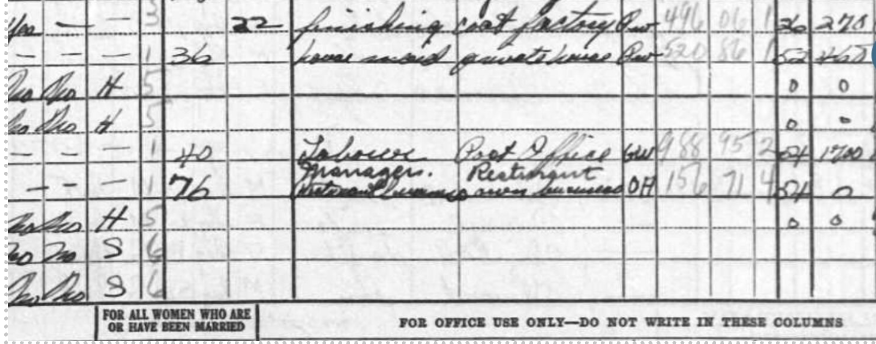 Yes — — 3 22 finishing coat factory Pw 496 06 1 26 270
— — — 1 36 house maid private house Pw 520 86 1 52 460
No No H 5 0 0
No No H 5 0 0
— — — 1 40 Laborer Post Office GW 988 95 2 52 1700
Manager. Restaurant
— — — 1 76 own business OA 156 71 4 52 0
No No H 5 0 0
No No S 6
No No S 6
FOR ALL WOMEN WHO ARE
OR HAVE BEEN MARRIED
FOR OFFICE USE ONLY—DO NOT WRITE IN THESE COLUMNS